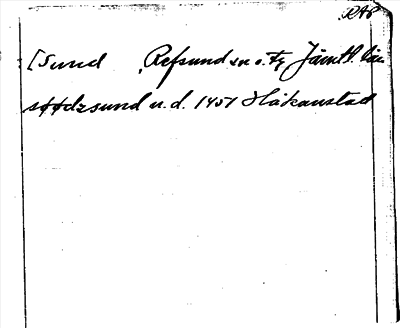 RAP
[Sund Refsund sn o. tg Jämtl. län
søødzsund u. d. 1451 Håkanstad